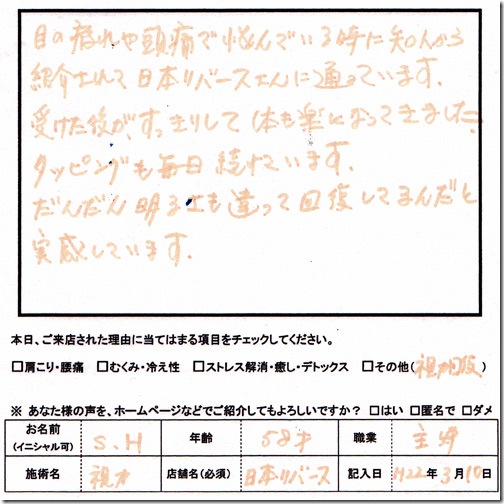 目の疲れや頭痛で悩んでいる時に知人から
紹介されて日本リバースさんに通っています。
受けた後が、すっきりして体も楽になってきました。
タッピングも毎日続けています。
だんだん明るさも違って回復してるんだと
実感しています。
本日、ご来店された理由に当てはまる項目をチェックしてください。
□肩こり・腰痛 □むくみ・冷え性 □ストレス解消・癒し・デトックス □その他(視力回復)
※ あなた様の声を、ホームページなどでご紹介してもよろしいですか？ □はい □匿名で □ダメ
お名前(イニシャル可) S.H 年齢 58才 職業 主婦
施術名 視力 店舗名(必須) 日本リバース 記入日 H22年3月10日